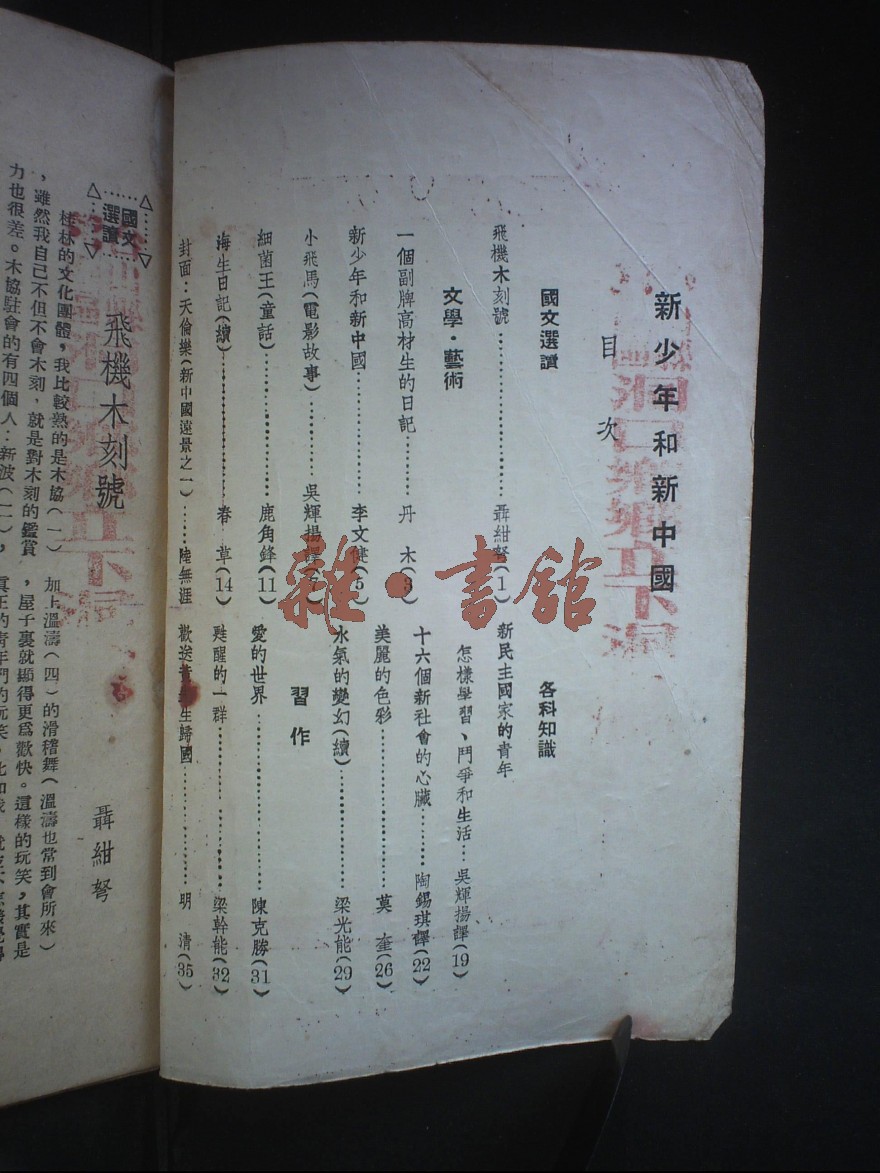 新少年和新中國
目次
國文選讀
飛機木刻號………………聶紺弩(1)
文學·藝術
一個副牌高材生的日記………丹 木(3)
新少年和新中國………………李文健(5)
小飛馬(電影故事)…………吳輝揚譯
細菌王(童話)………………鹿角鋒(11)
海生日記(續)………………春 草(14)
封面:天倫樂(新中國遠景之一)……陸無涯
各科知識
新民主國家的青年
怎樣學習、鬥爭和生活…吳輝揚譯(19)
十六個新社會的心臟………陶錫琪譯(22)
美麗的色彩………………莫 奎(26)
水氣的變幻(續)…………梁光能(29)
習作
愛的世界………………陳克勝(31)
甦醒的一群………………梁幹能(32)
歡送 生歸國………………明 清(35)
雜·書館
國文
選讀
飛機木刻號
聶紺弩
桂林的文化團體,我比較熟的是木協(一)
,雖然我自己不但不會木刻,就是對木刻的鑑賞
力也很差。木協駐會的有四個人:新波(二),
加上溫濤(四)的滑稽舞(溫濤也常到會所來)
,屋子裏就顯得更爲歡快。這樣的玩笑,其實是
真正的青年們的玩笑,